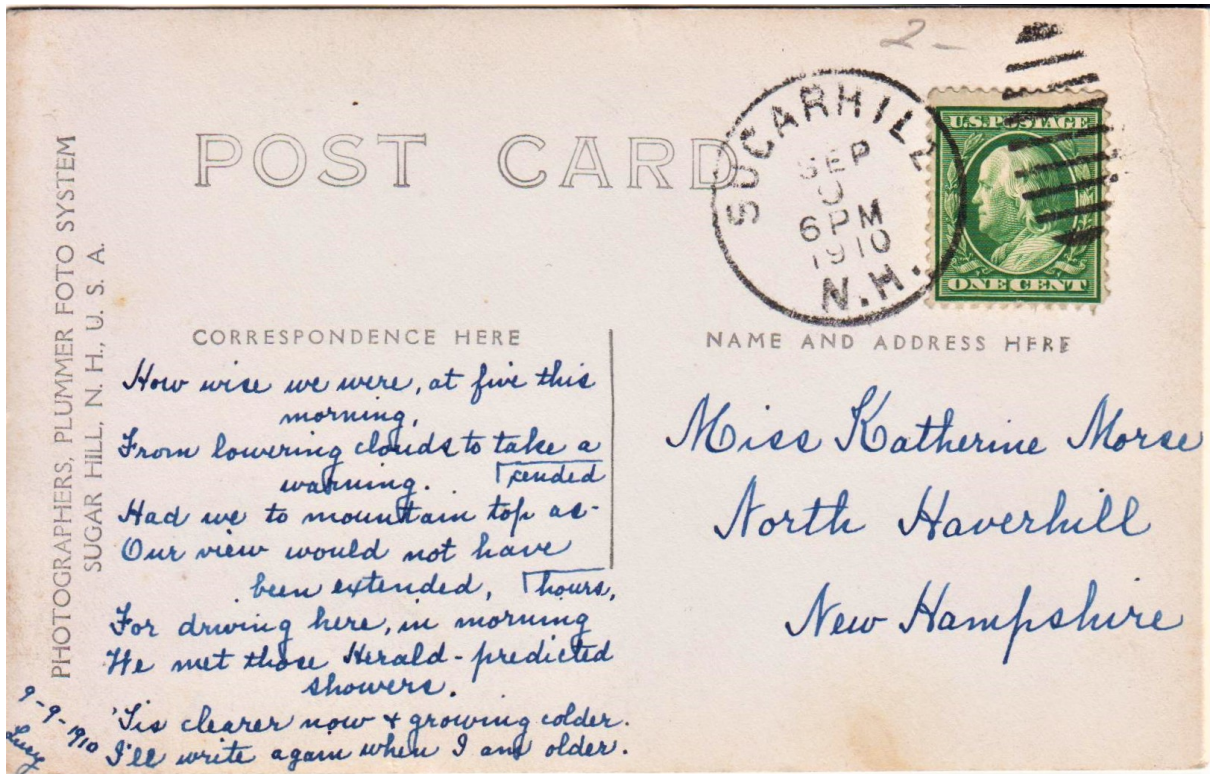 2-
SUGARHILL
SEP
6PM
1910
N.H.
U.S.POSTAGE
ONE CENT
POST CARD
PHOTOGRAPHERS, PLUMMER FOTO SYSTEM
SUGAR HILL, N. H., U. S. A.
CORRESPONDENCE HERE
How wise we were, at five this
morning,
From lowering clouds to take a
warning.
Had we to mountain top as-
cended
Our view would not have
been extended,
For driving here, in morning
hours,
We met those Herald-predicted
showers.
'Tis clearer now & growing colder.
I'll write again when I am older.
9-9-1910
Lucy
NAME AND ADDRESS HERE
Miss Katherine Morse
North Haverhill
New Hampshire